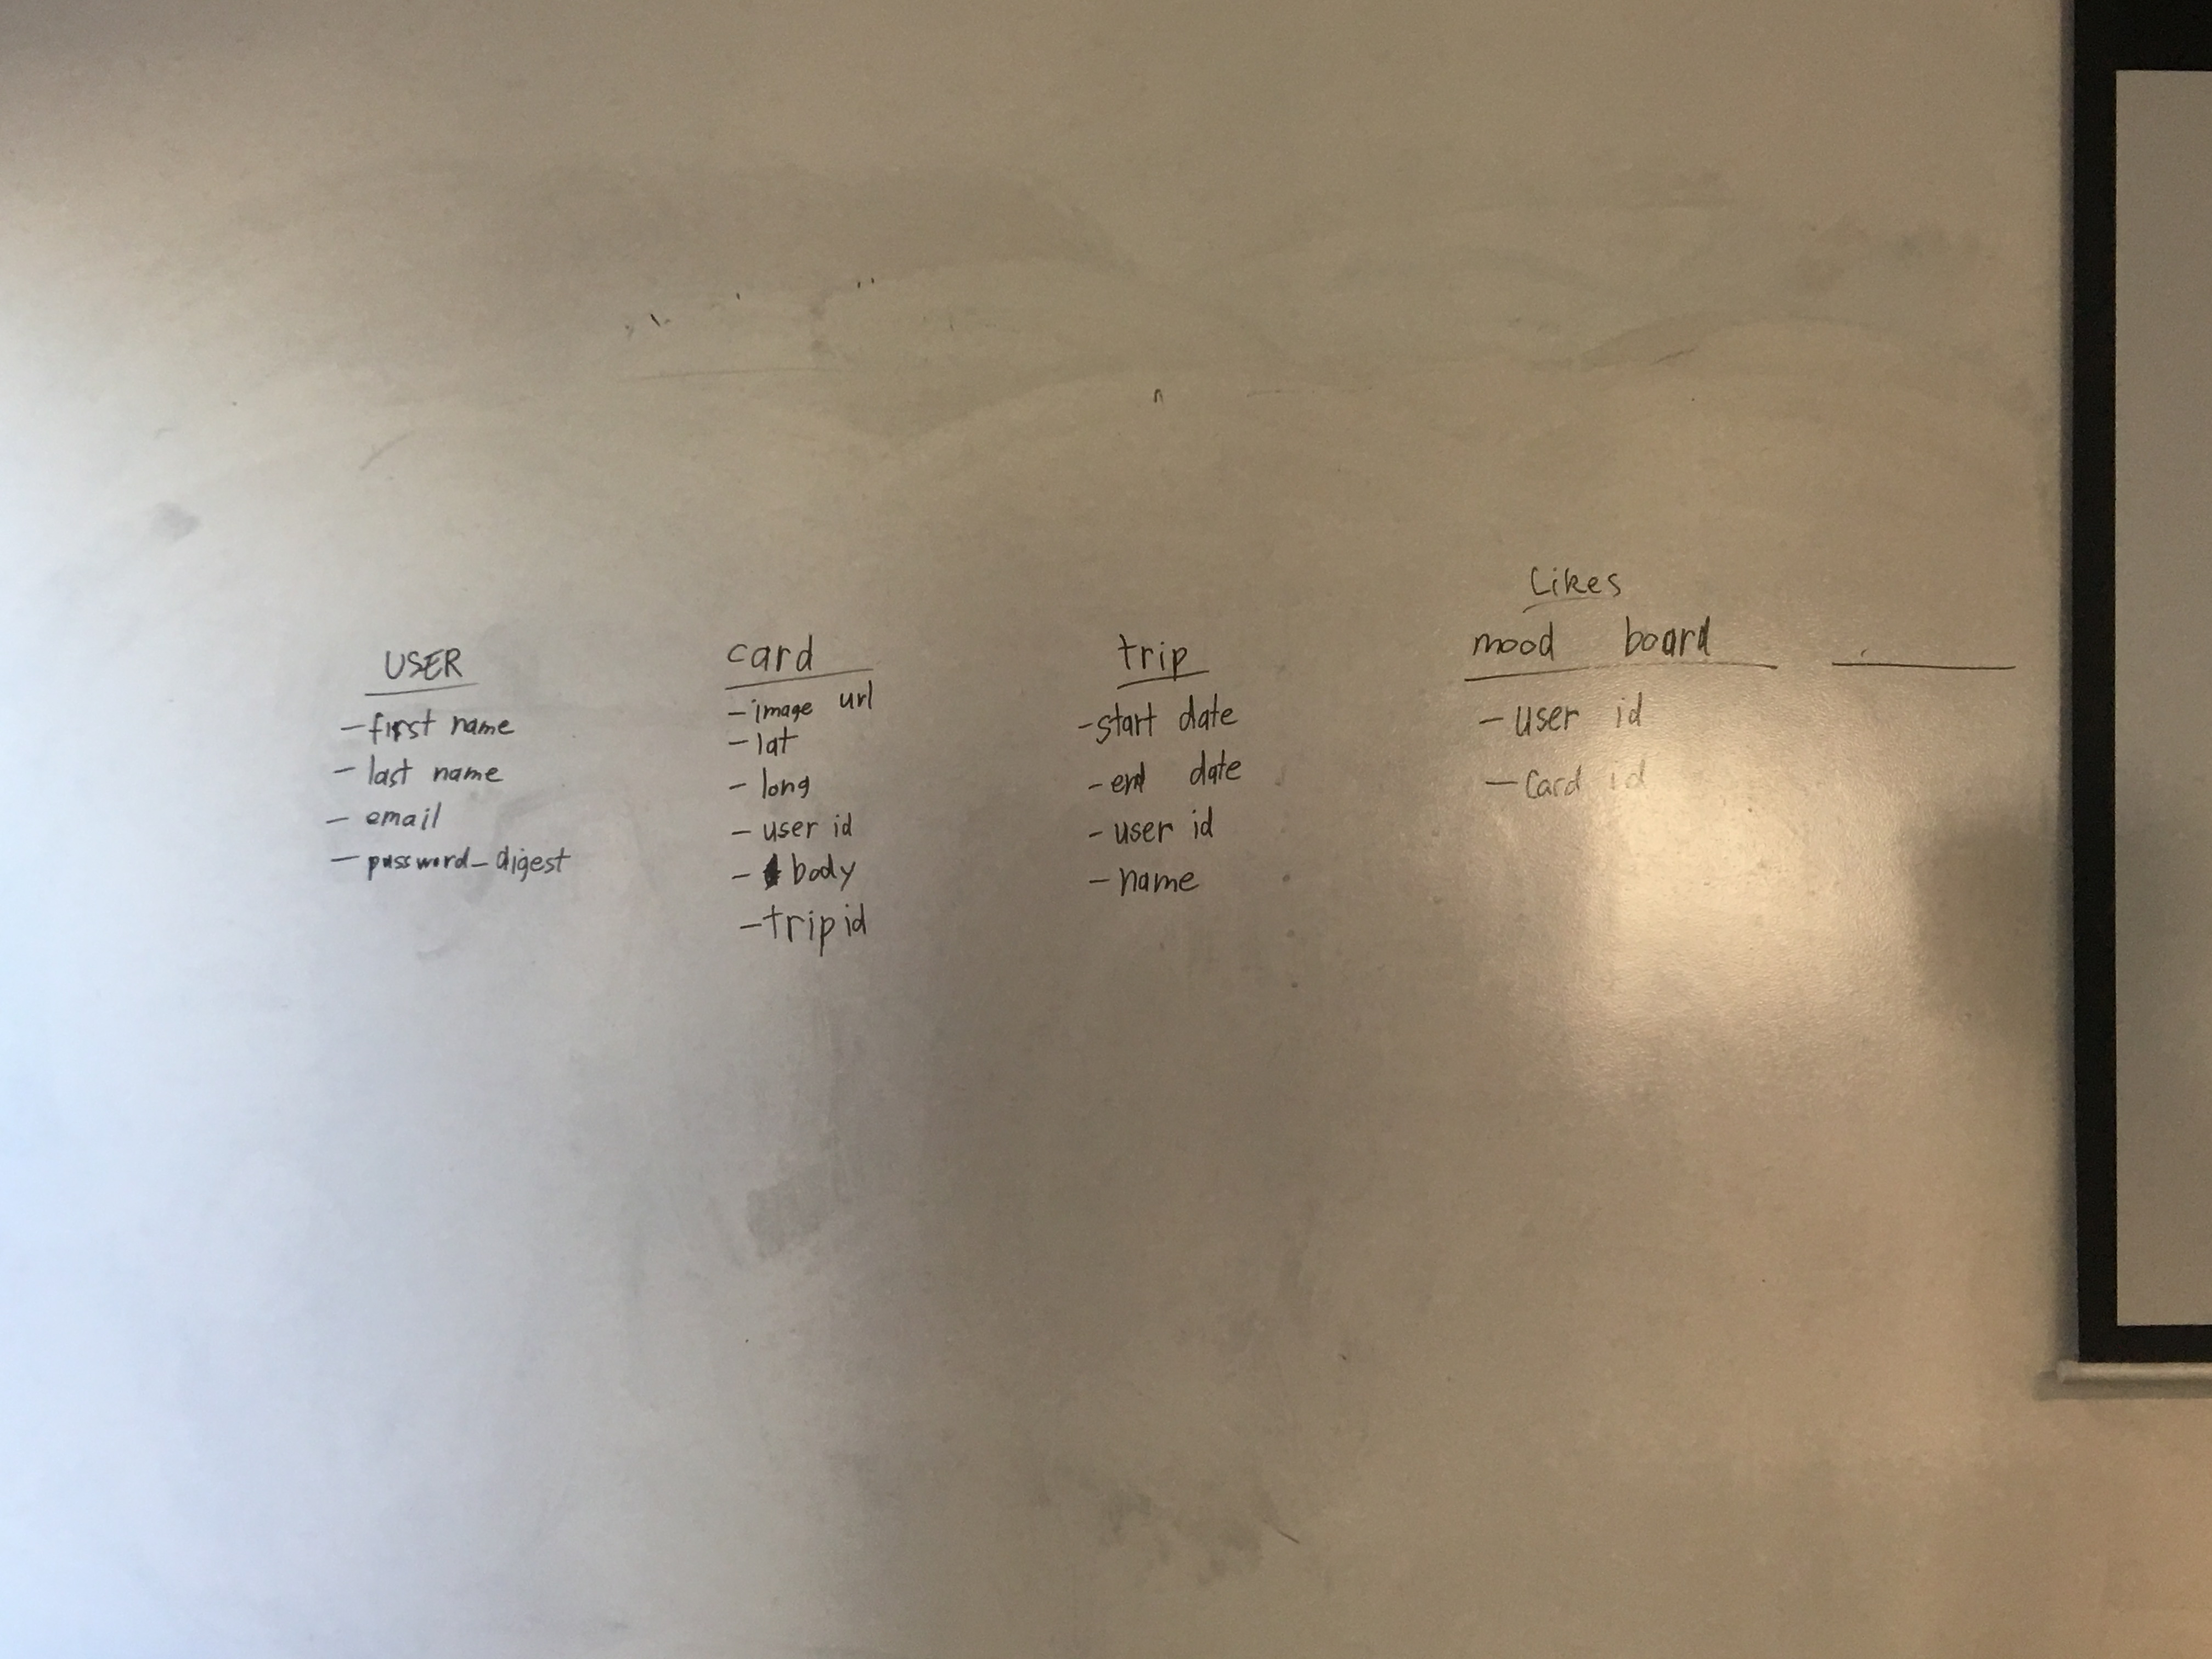 USER
- first name
- last name
- email
- password_digest
card
- image url
- lat
- long
- user id
- body
- trip id
trip
- start date
- end date
- user id
- name
Likes
mood board
- user id
- Card id